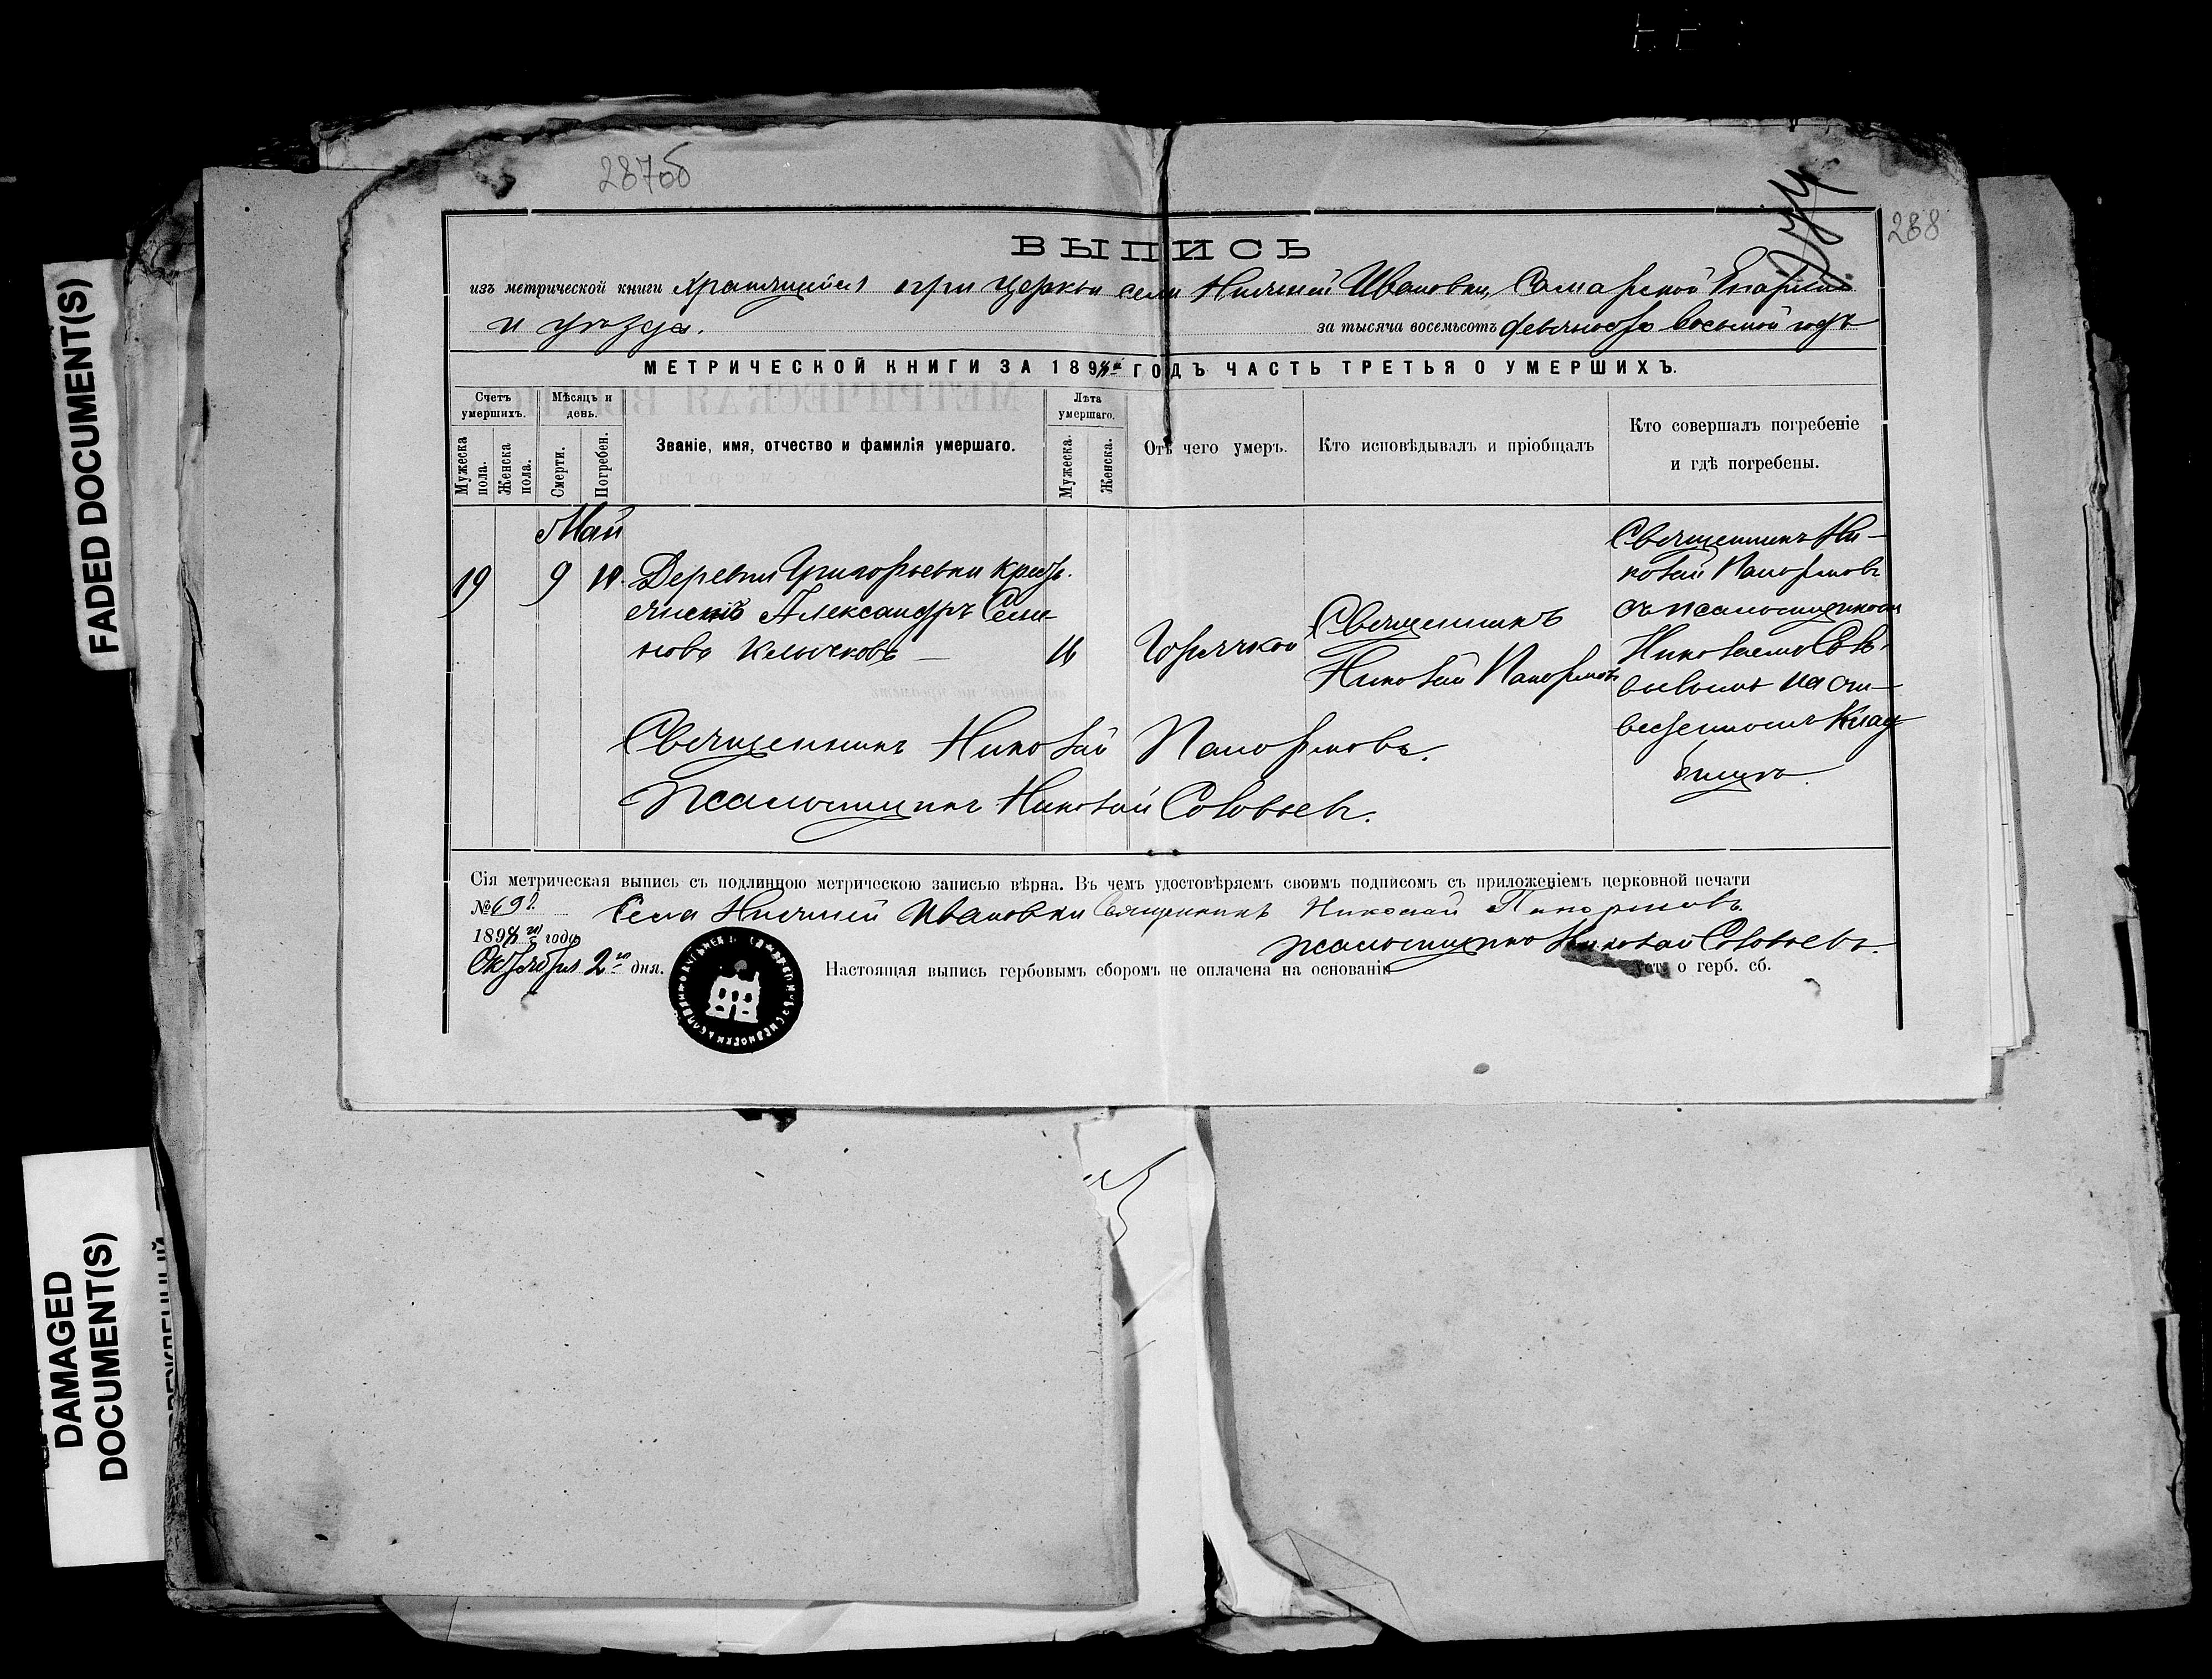 FADED DOCUMENT(S)
DAMAGED
DOCUMENT(S)
287об
288
ВЫПИСЬ
изъ метрической книги хранящейся при церкви села Нижней Ивановки, Самарской Епархіи
и уѣзда.
за тысяча восемьсотъ девяносто восьмой годъ
МЕТРИЧЕСКОЙ КНИГИ ЗА 1898й ГОДЪ ЧАСТЬ ТРЕТЬЯ О УМЕРШИХЪ.
Счетъ умершихъ.
Мужеска пола.
Женска пола.
Мѣсяцъ и день.
Смерти.
Погребен.
Званіе, имя, отчество и фамилія умершаго.
Лѣта умершаго.
Мужеска.
Женска.
Отъ чего умеръ.
Кто исповѣдывалъ и пріобщалъ
Кто совершалъ погребеніе
и гдѣ погребены.
Май
19 9
Деревни Григорьевки крест.
Александръ Семе-
новъ Клычковъ —
Горячкой
Священникъ
Николай Панормовъ
Священникъ Ни-
колай Панормовъ
съ псаломщикомъ
Николаемъ Соло-
вьевымъ на от-
веденномъ клад
бищѣ.
Священникъ Николай Панормовъ.
Псаломщикъ Николай Соловьевъ.
Сія метрическая выпись съ подлинною метрическою записью вѣрна. Въ чемъ удостовѣряемъ своимъ подписомъ съ приложеніемъ церковной печати
№ 69
Села Нижней Ивановки Священникъ Николай Панормовъ.
1898го года
Псаломщикъ Николай Соловьевъ.
Октября 2го дня.
Настоящая выпись гербовымъ сборомъ не оплачена на основаніи
уст. о герб. сб.